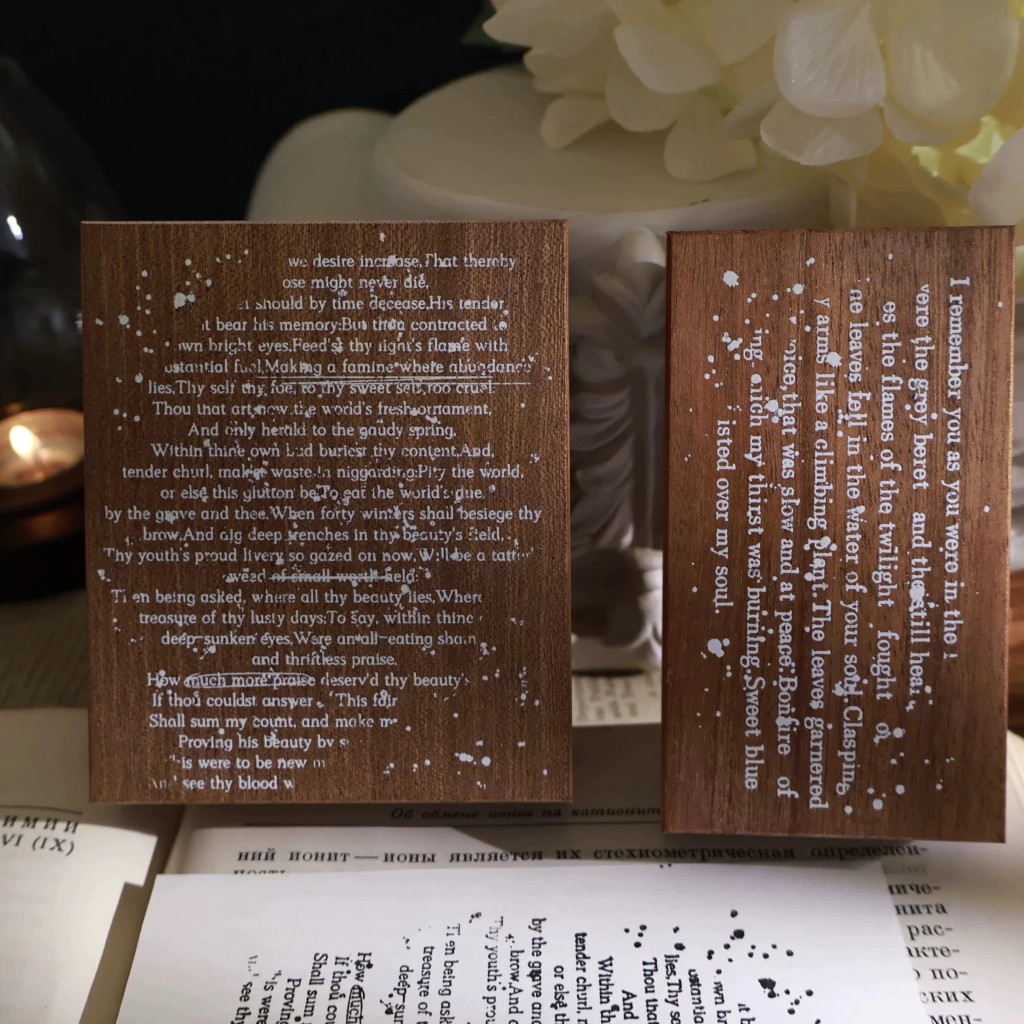 we desire increase,That thereby
ose might never die,
should by time decease,His tender
it bear his memory:But thou contracted to
wn bright eyes,Feed'st thy light's flame with
bstantial fuel,Making a famine where abundance
lies,Thy self thy foe, to thy sweet self too cruel:
Thou that art now the world's fresh ornament,
And only herald to the gaudy spring,
Within thine own bud buriest thy content,And,
tender churl, mak'st waste in niggarding:Pity the world,
or else this glutton be,To eat the world's due,
by the grave and thee.When forty winters shall besiege thy
brow,And dig deep trenches in thy beauty's field,
Thy youth's proud livery so gazed on now,Will be a tatter
weed of small worth held:
Then being asked, where all thy beauty lies,Where
treasure of thy lusty days;To say, within thine
deep-sunken eyes,Were an all-eating sham
and thriftless praise.
How much more praise deserv'd thy beauty's
If thou couldst answer 'This fair
Shall sum my count, and make m
Proving his beauty by s
is were to be new m
see thy blood w
I remember you as you were in the
were the grey beret and the still hear
es the flames of the twilight fought o
he leaves fell in the water of your soul.Clasping
y arms like a climbing plant.The leaves garnered
voice,that was slow and at peace.Bonfire of
ing which my thirst was burning.Sweet blue
isted over my soul
ИМИИ
VI (IX)
Об обмене ионов на катионит
ний ионит — ионы является их стехиометрическая определен-
ниче-
нита
рас-
акте-
о по-
ских
мен-
it b
wn br
lies,Thy se
Thou that
And
Within th
tender churl, m
or else th
by the grave and
brow,And d
Thy youth's prou
Ti en being ask
treasure of t
deep-sun
How much
If thou cou
Shall sum
Provin
is wer
see th